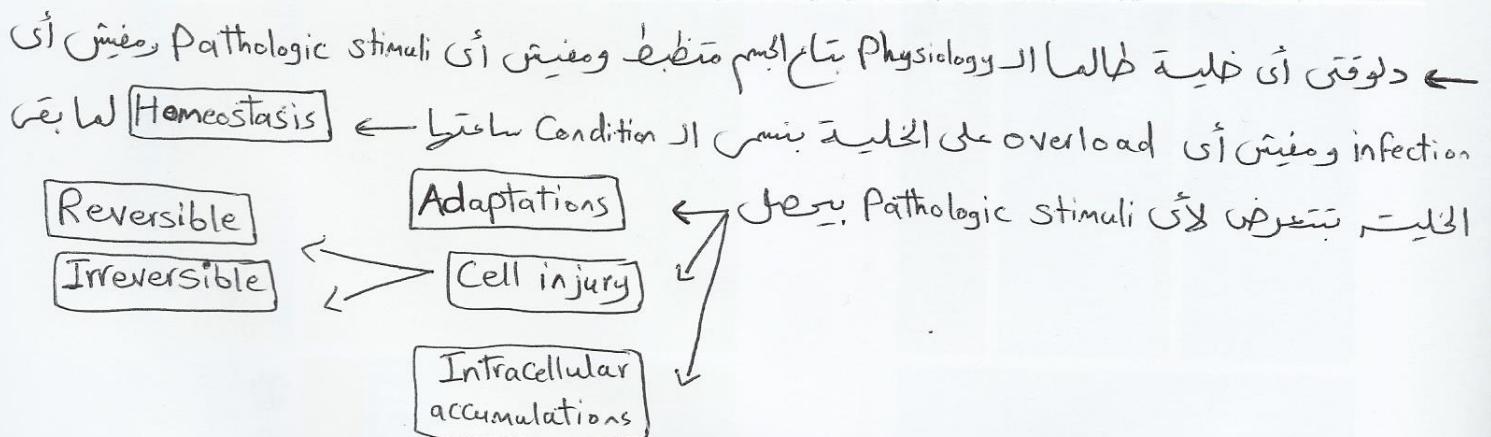 ← دلوقتى أى خلية طالما الـ Physiology بتاع الجسم متظبط ومفيش أى Pathologic stimuli ومفيش أى
infection ومفيش أى overload على الخلية بنسمى الـ Condition ساعتها ← Homeostasis لما بقى
الخلية بتتعرض لأى Pathologic stimuli بيحصل ← Adaptations
Reversible
Cell injury
Irreversible
Intracellular
accumulations